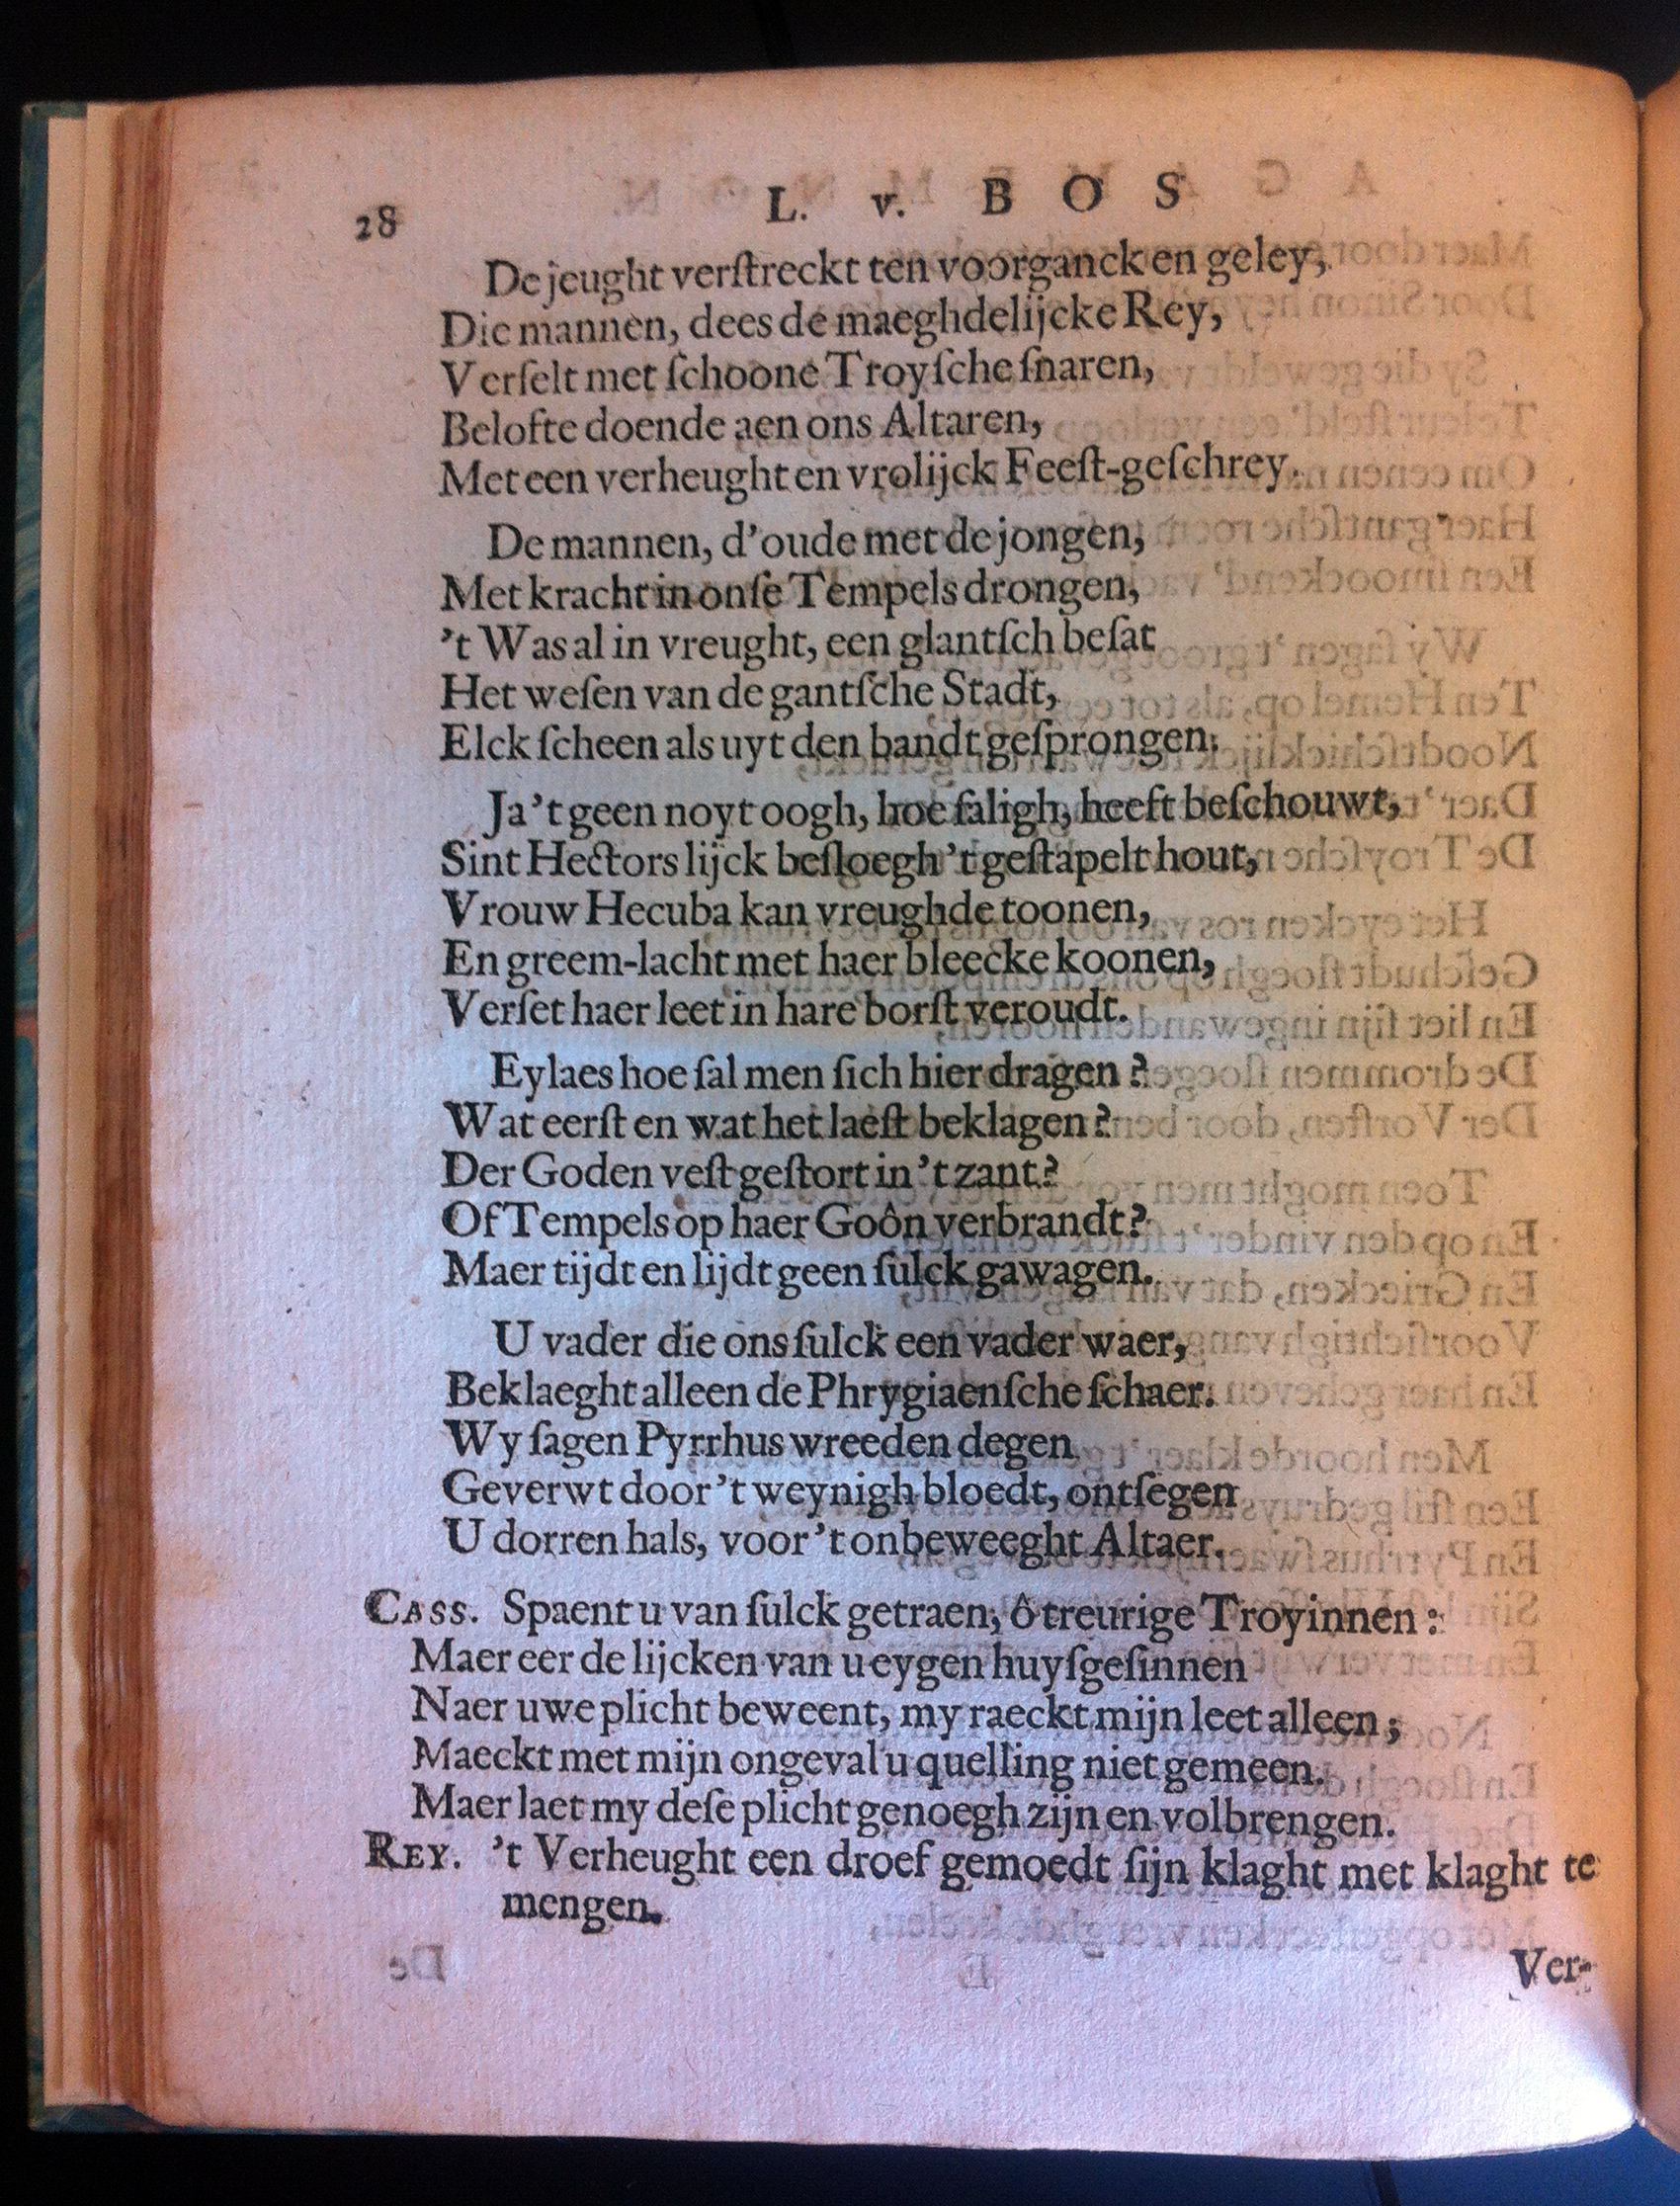 28 L. v. BOS
De jeught verſtreckt ten voorganck en geley,
Die mannen, dees de maeghdelijcke Rey,
Verſelt met ſchoone Troyſche ſnaren,
Belofte doende aen ons Altaren,
Met een verheught en vrolijck Feeſt-geſchrey.
De mannen, d'oude met de jongen,
Met kracht in onſe Tempels drongen,
't Was al in vreught, een glantſch beſat
Het weſen van de gantſche Stadt,
Elck ſcheen als uyt den bandt geſprongen.
Ja 't geen noyt oogh, hoe ſaligh, heeft beſchouwt,
Sint Hectors lijck beſloegh 't geſtapelt hout,
Vrouw Hecuba kan vreughde toonen,
En greem-lacht met haer bleecke koonen,
Verſet haer leet in hare borſt veroudt.
Eylaes hoe ſal men ſich hier dragen?
Wat eerſt en wat het laeſt beklagen?
Der Goden veſt geſtort in 't zant?
Of Tempels op haer Goôn verbrandt?
Maer tijdt en lijdt geen ſulck gawagen.
U vader die ons ſulck een vader waer,
Beklaeght alleen de Phrygiaenſche ſchaer.
Wy ſagen Pyrrhus wreeden degen
Geverwt door 't weynigh bloedt, ontſegen
U dorren hals, voor 't onbeweeght Altaer.
CASS. Spaent u van ſulck getraen, ô treurige Troyinnen:
Maer eer de lijcken van u eygen huyſgeſinnen
Naer uwe plicht beweent, my raeckt mijn leet alleen;
Maeckt met mijn ongeval u quelling niet gemeen.
Maer laet my deſe plicht genoegh zijn en volbrengen.
REY. 't Verheught een droef gemoedt ſijn klaght met klaght te
mengen.
Ver-